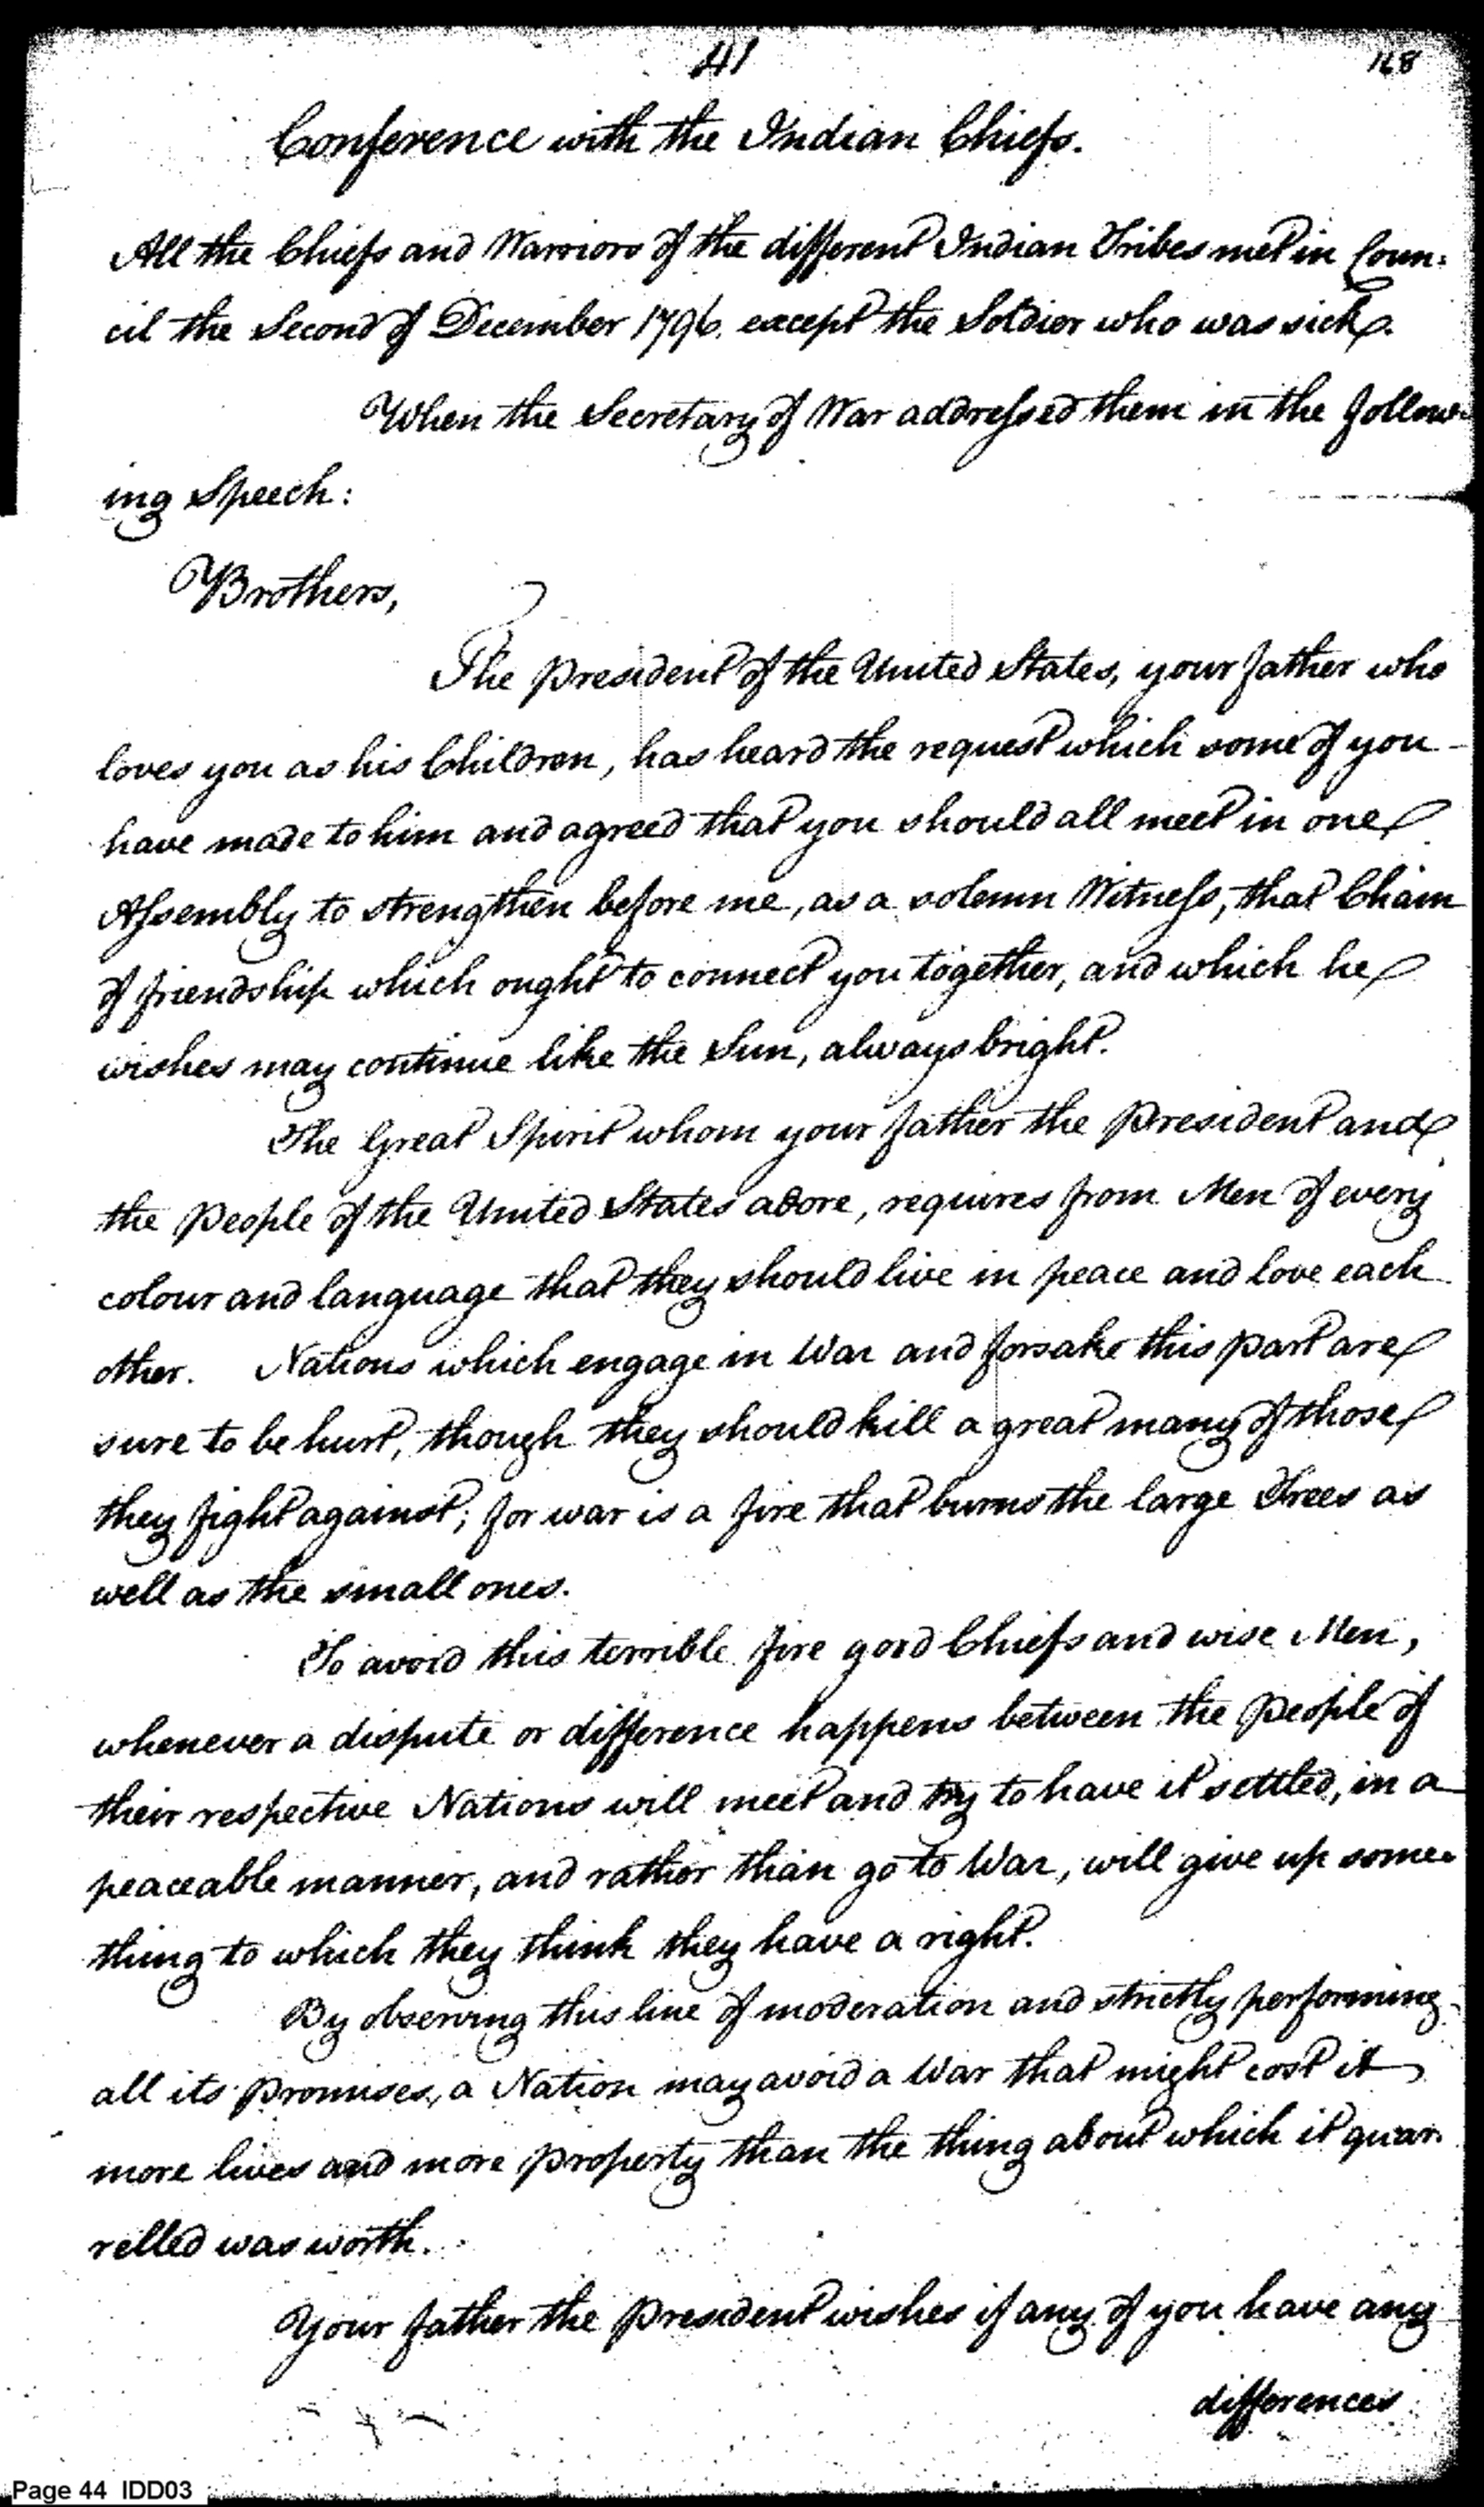 41
168
Conference with the Indian Chiefs.
All the Chiefs and Warriors of the different Indian Tribes met in Coun-
cil the Second of December 1796. except the Soldier who was sick.
When the Secretary of War addressed them in the follow-
ing Speech:
Brothers,
The President of the United States, your father who
loves you as his Children, has heard the request which some of you
have made to him and agreed that you should all meet in one
Assembly to strengthen before me, as a solemn Witness, that Chain
of friendship which ought to connect you together, and which he
wishes may continue like the Sun, always bright.
The Great Spirit whom your father the President and
the People of the United States adore, requires from Men of every
colour and language that they should live in peace and love each
other. Nations which engage in War and forsake this part are
sure to be hurt, though they should kill a great many of those
they fight against; for war is a fire that burns the large Trees as
well as the small ones.
To avoid this terrible fire good Chiefs and wise Men,
whenever a dispute or difference happens between the People of
their respective Nations will meet and try to have it settled, in a
peaceable manner, and rather than go to War, will give up some-
thing to which they think they have a right.
By observing this line of moderation and strictly performing
all its Promises, a Nation may avoid a War that might cost it
more lives and more property than the thing about which it quar-
relled was worth.
Your father the President wishes if any of you have any
differences
Page 44 IDD03